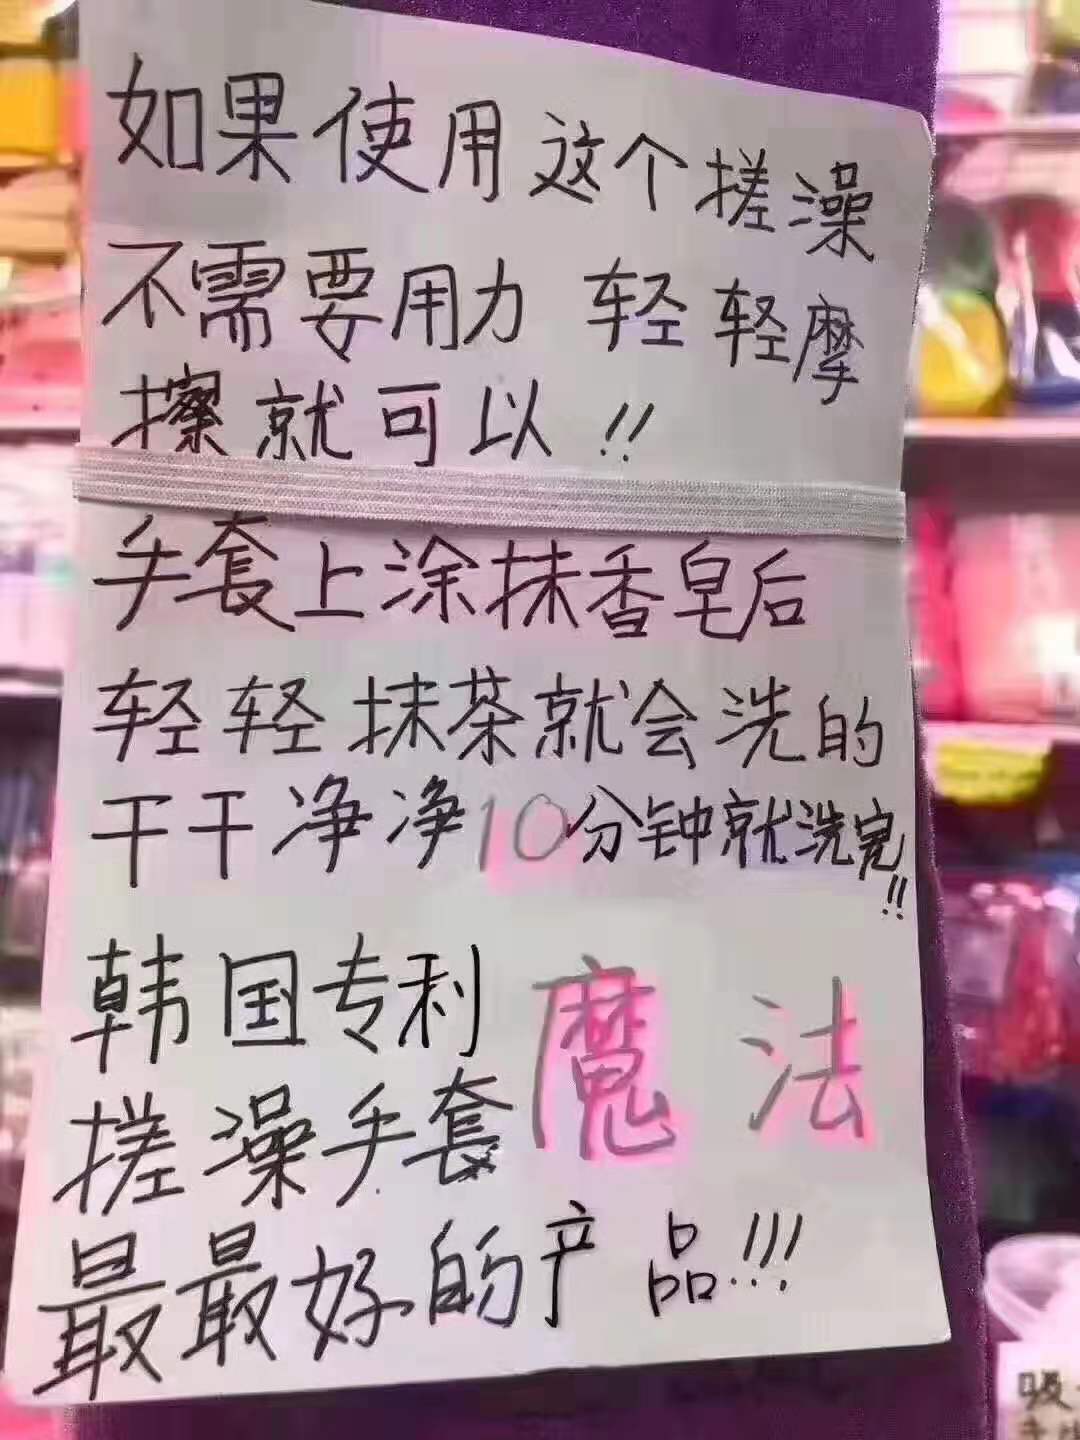 如果使用这个搓澡
不需要用力 轻轻摩
擦就可以!!
手套上涂抹香皂后
轻轻抹茶就会洗的
干干净净10分钟就洗完!!
韩国专利 魔法
搓澡手套
最最好的产品!!!
吸